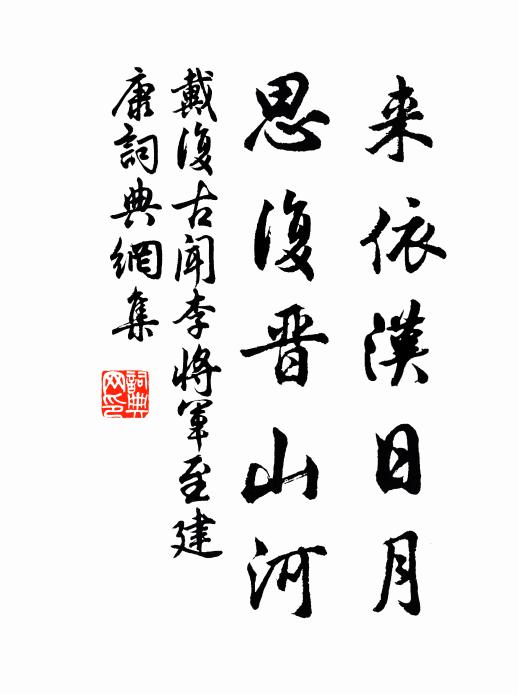 来依漢日月
思復晋山河
戴復古聞李將軍至建
康詞典網集
詞典
网印